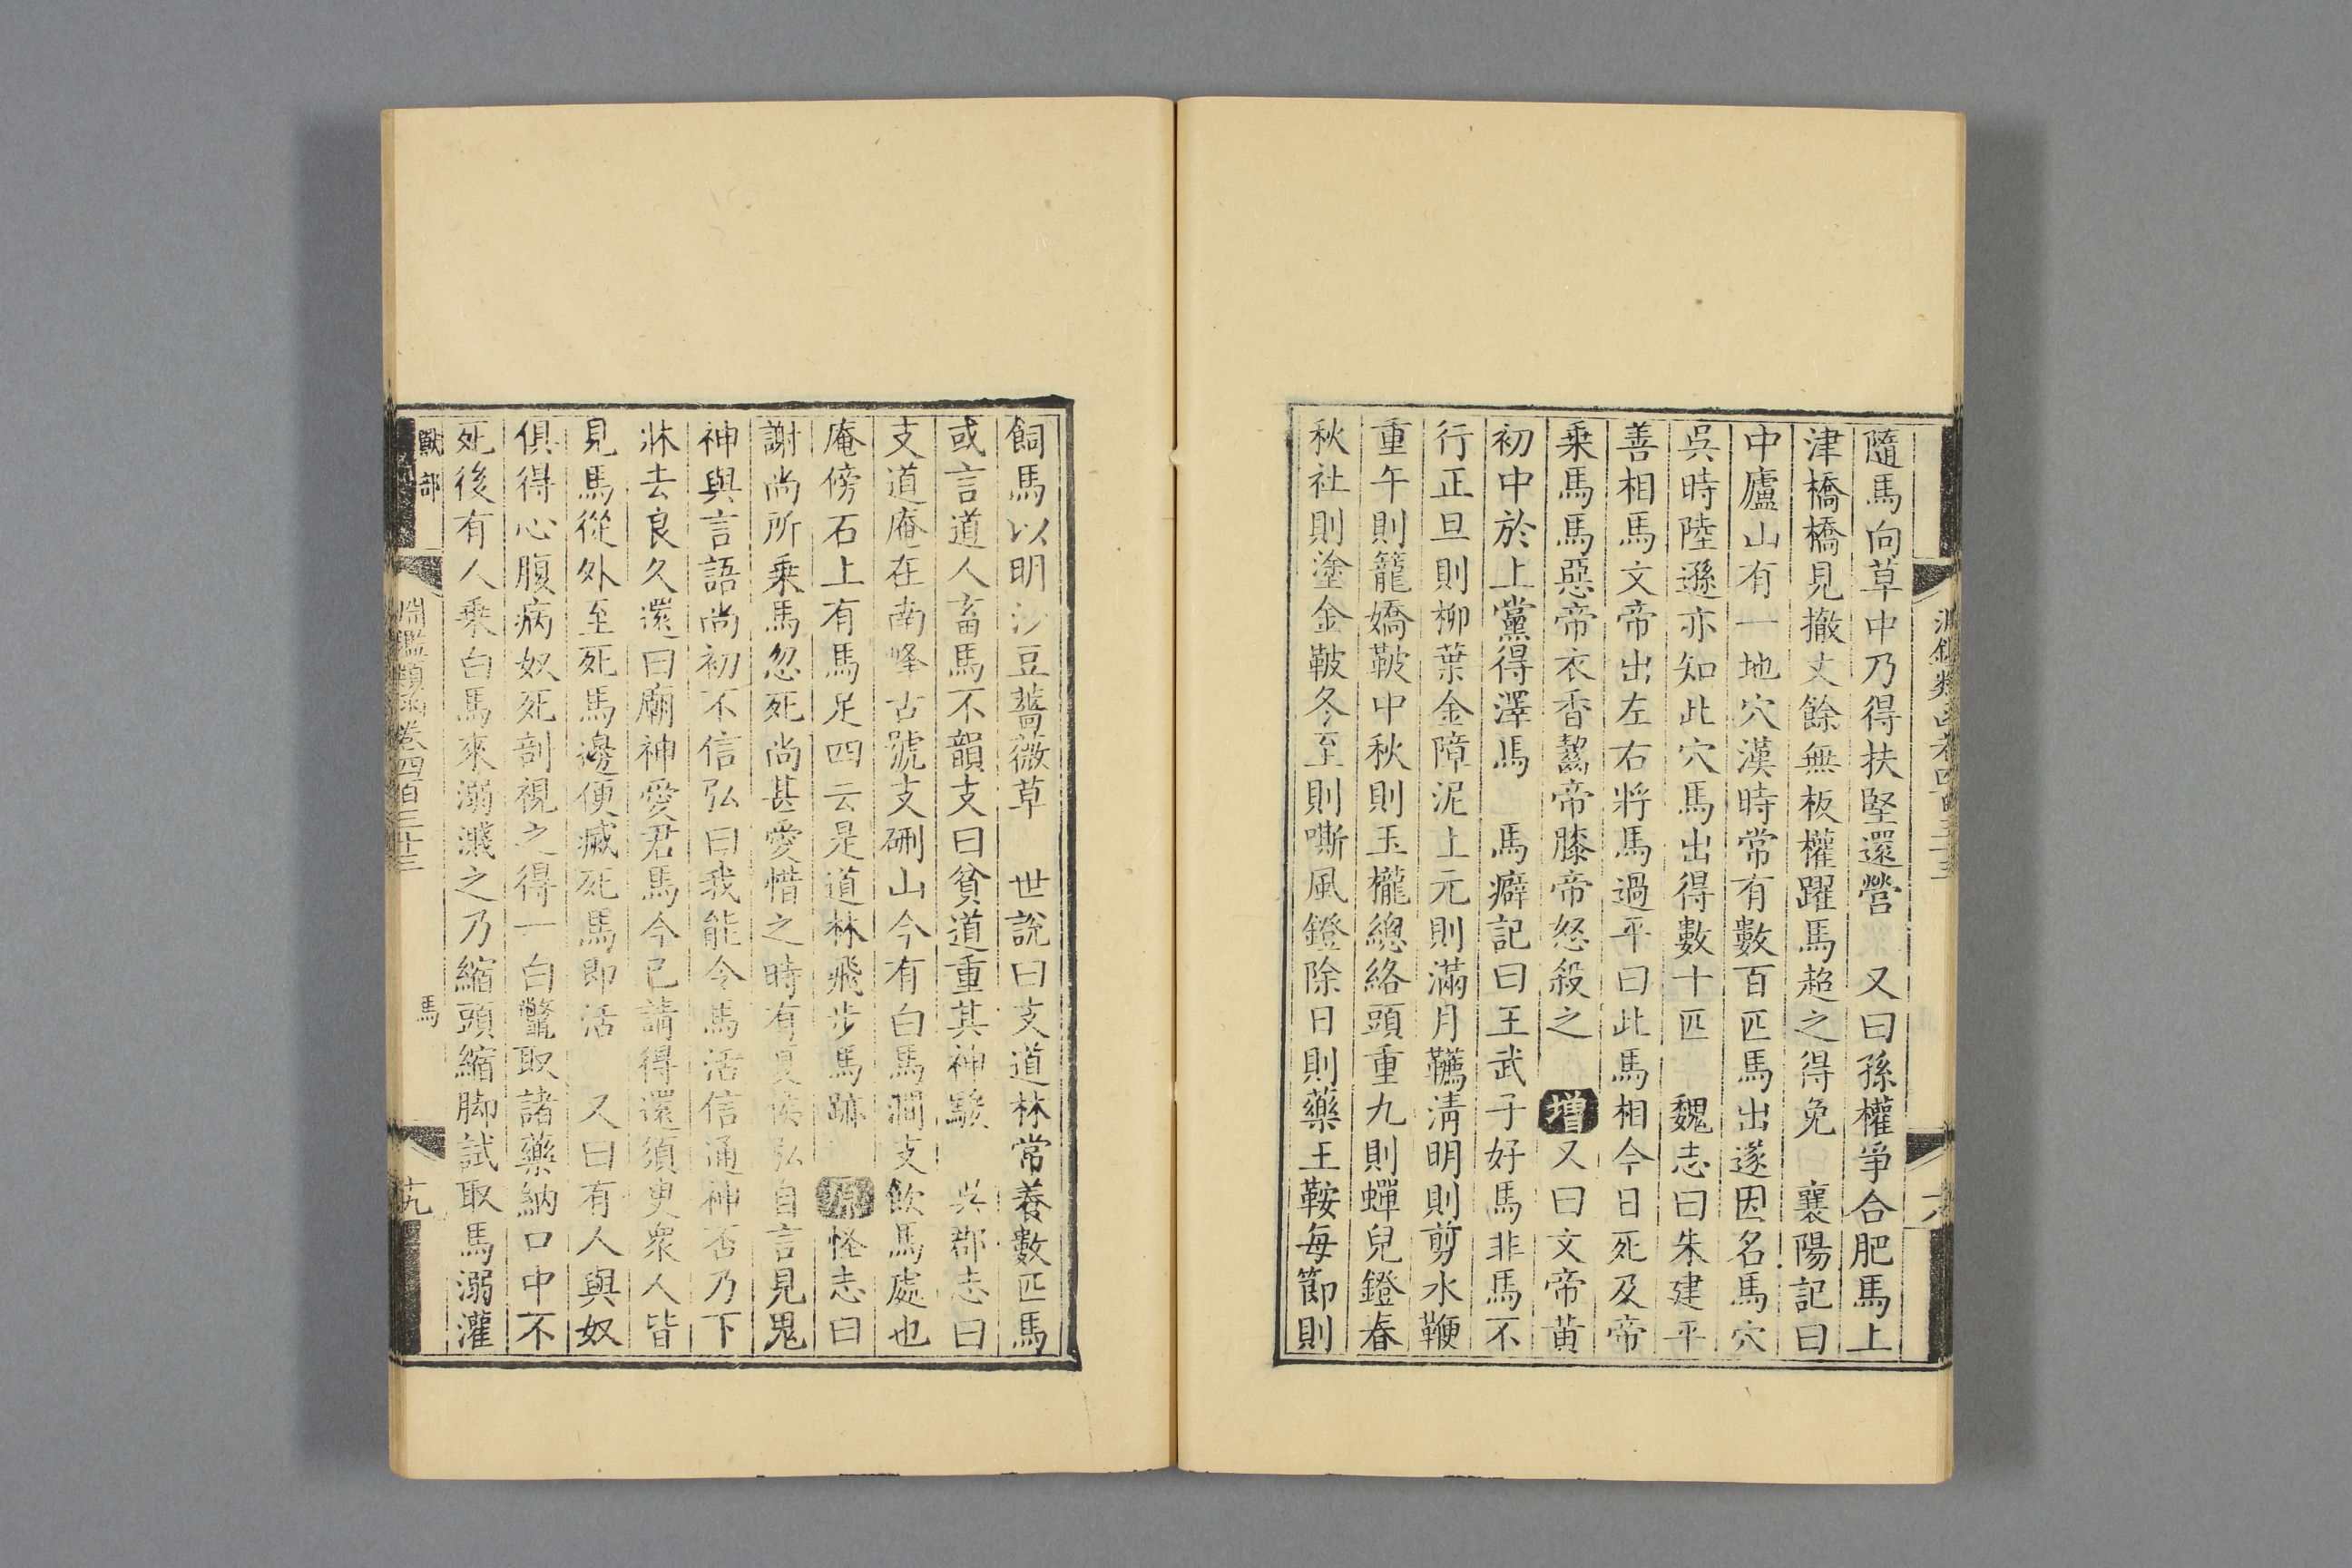 隨馬向草中乃得扶堅還營　又曰孫權爭合肥馬上
津橋橋見撤丈餘無板權躍馬超之得免　襄陽記曰
中廬山有一地穴漢時常有數百匹馬出遂因名馬穴
吳時陸遜亦知此穴馬出得數十匹　魏志曰朱建平
善相馬文帝出左右將馬過平曰此馬相今日死及帝
乗馬馬惡帝衣香齧帝膝帝怒殺之　增又曰文帝黃
初中於上黨得澤馬　馬癖記曰王武子好馬非馬不
行正旦則柳葉金障泥上元則滿月韉淸明則剪水鞭
重午則籠嬌鞁中秋則玉櫳總絡頭重九則蟬兒鐙春
秋社則塗金鞁冬至則嘶風鐙除日則藥王鞍每節則
飼馬以明沙豆薔薇草　世說曰支道林常養數匹馬
或言道人畜馬不韻支曰貧道重其神駿　吳郡志曰
支道庵在南峰古號支硎山今有白馬澗支飲馬處也
庵傍石上有馬足四云是道林飛步馬跡　原怪志曰
謝尚所乗馬忽死尚甚愛惜之時有夏侯弘自言見鬼
神與言語尚初不信弘曰我能令馬活信通神否乃下
牀去良久還曰廟神愛君馬今已請得還須臾衆人皆
見馬從外至死馬邊便滅死馬即活　又曰有人與奴
俱得心腹病奴死剖視之得一白鼈取諸藥納口中不
死後有人乗白馬來溺濺之乃縮頭縮脚試取馬溺灌
獸部
淵鑑類函卷四百三十三
馬